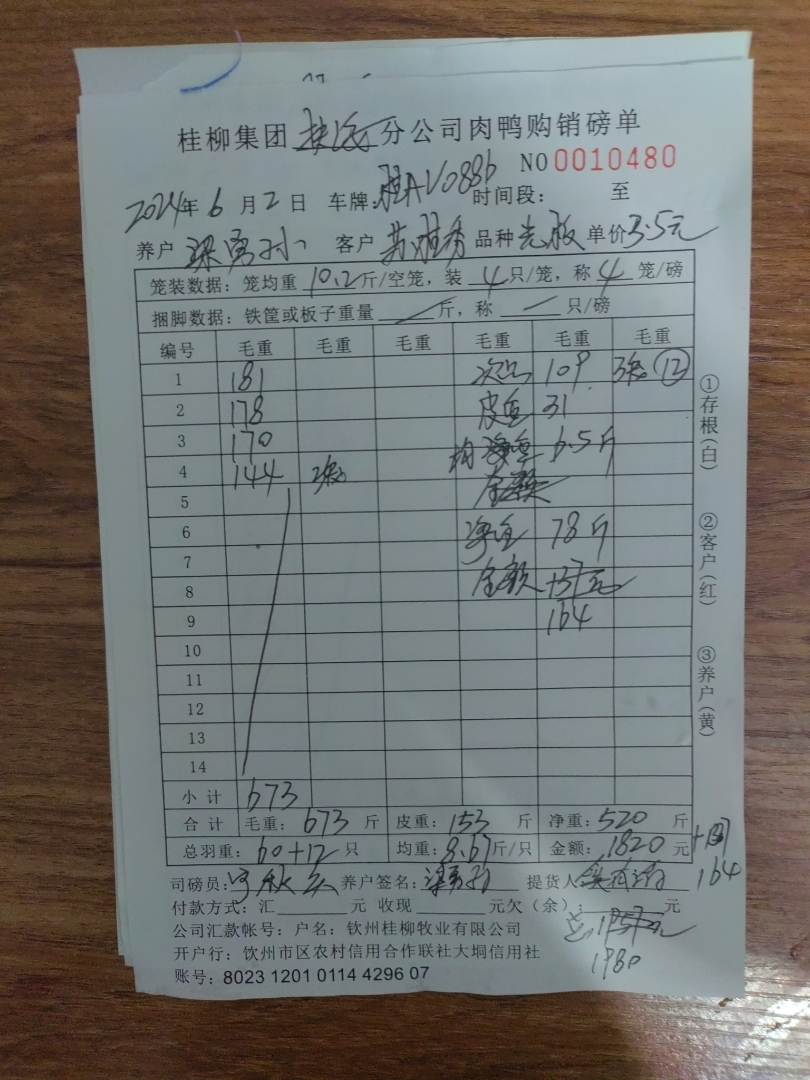 桂柳集团 分公司肉鸭购销磅单
NO 0010480
2024年 6 月 2 日 车牌: 桂AV0886 时间段: 至
养户 梁勇孙 客户 苏雅秀 品种 光板 单价 3.5元
笼装数据: 笼均重 10.2 斤/空笼, 装 4 只/笼, 称 4 笼/磅
捆脚数据: 铁筐或板子重量 斤, 称 只/磅
编号 毛重 毛重 毛重 毛重 毛重 毛重
1 181 次品 109 3笼 ⑫
2 178 皮重 31
3 170 均 6.5斤
4 144 3笼
5
6 净重 78斤
7
8 金额
9 164
10
11
12
13
14
小计 673
合计 毛重: 673 斤 皮重: 153 斤 净重: 520 斤
总羽重: 60+12 只 均重: 8.67 斤/只 金额: 1820 元
164
司磅员: 养户签名: 梁勇孙 提货人
付款方式: 汇 元 收现 元欠(余): 元
公司汇款帐号: 户名: 钦州桂柳牧业有限公司
开户行: 钦州市区农村信用合作联社大垌信用社
1980
账号: 8023 1201 0114 4296 07
①存根(白)
②客户(红)
③养户(黄)